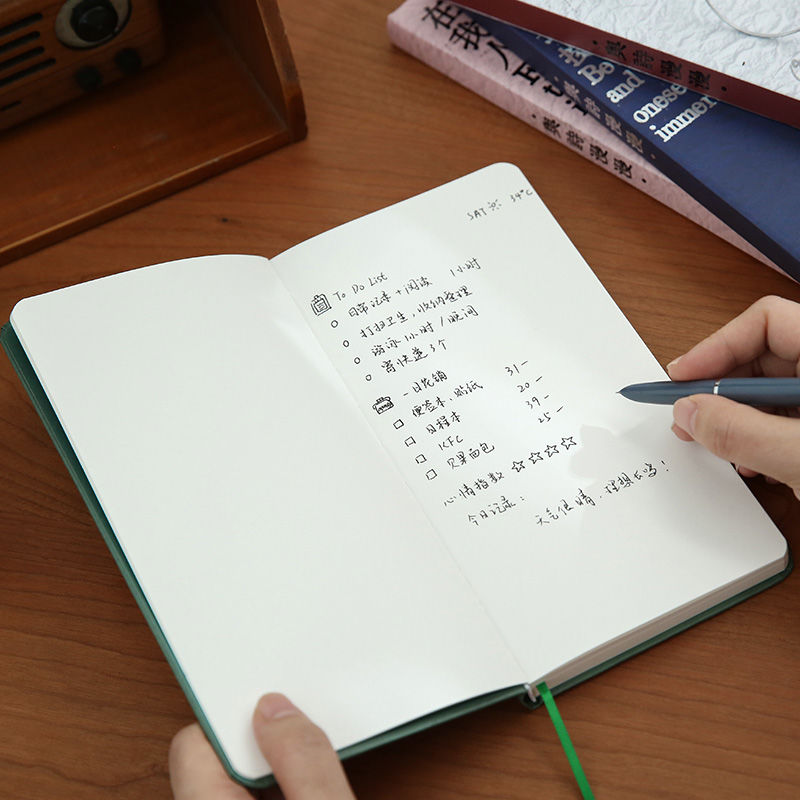 SAT 34°C
To Do List
日常记录 + 阅读 1小时
打扫卫生，收纳整理
游泳 1小时 / 晚间
寄快递 3个
一日花销
便签本、贴纸 31-
日程本 20-
KFC 39-
贝果面包 25-
心情指数 ☆☆☆☆
今日记录：
天气很晴，理想长鸣！
在我人
奥詩漫漫
Be
and
onese
immer
奥詩漫漫
奥詩漫漫